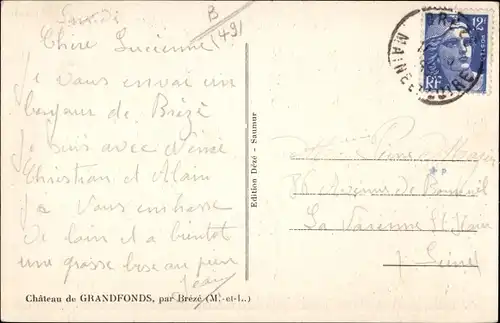 Lundi
B
(49)
Chère Lucienne
Je vous envoi un
bonjour de Brézé
Je suis avec
Christian et Alain
Je vous embrasse
de loin et a bientot
une grosse bise au
Jean
Château de GRANDFONDS, par Brézé (M.-et-L.)
Edition Dézé - Saumur
12F
RF
MAINE LOIRE
86 Avenue de Bonneuil
La Varenne St Hilaire
Seine